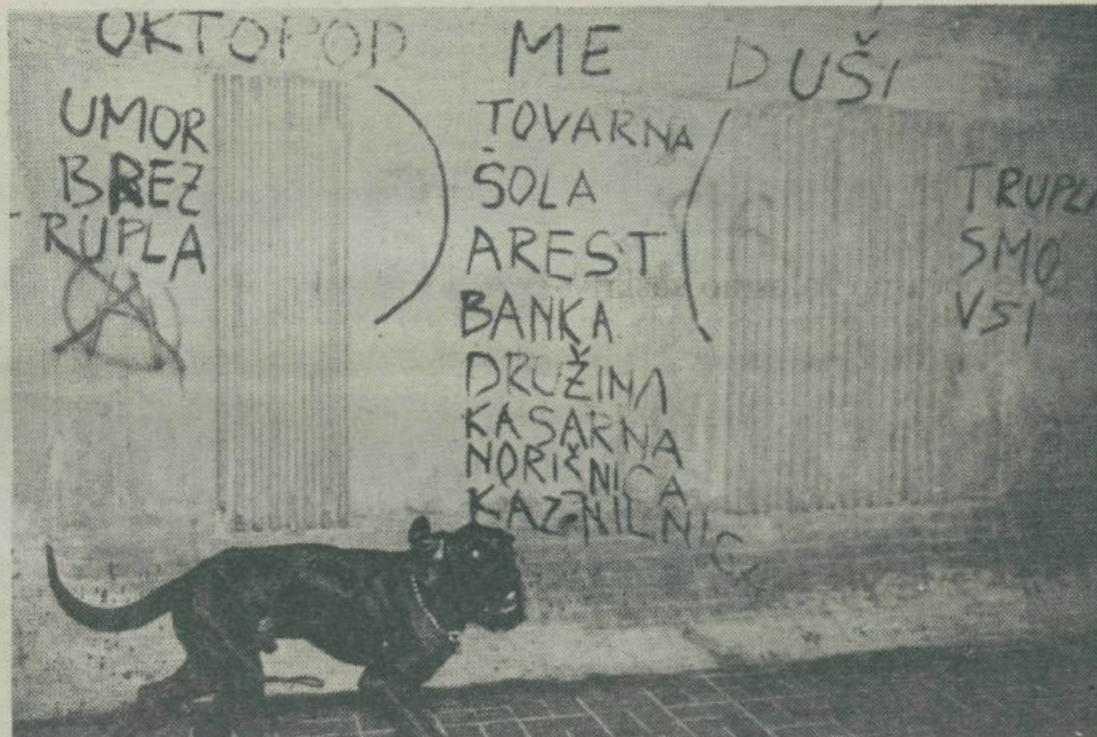 OKTOPOD ME DUŠI
UMOR
BREZ
TRUPLA
TOVARNA
ŠOLA
AREST
BANKA
DRUŽINA
KASARNA
NORIŠNICA
KAZNILNICA
TRUPLA
SMO
VSI